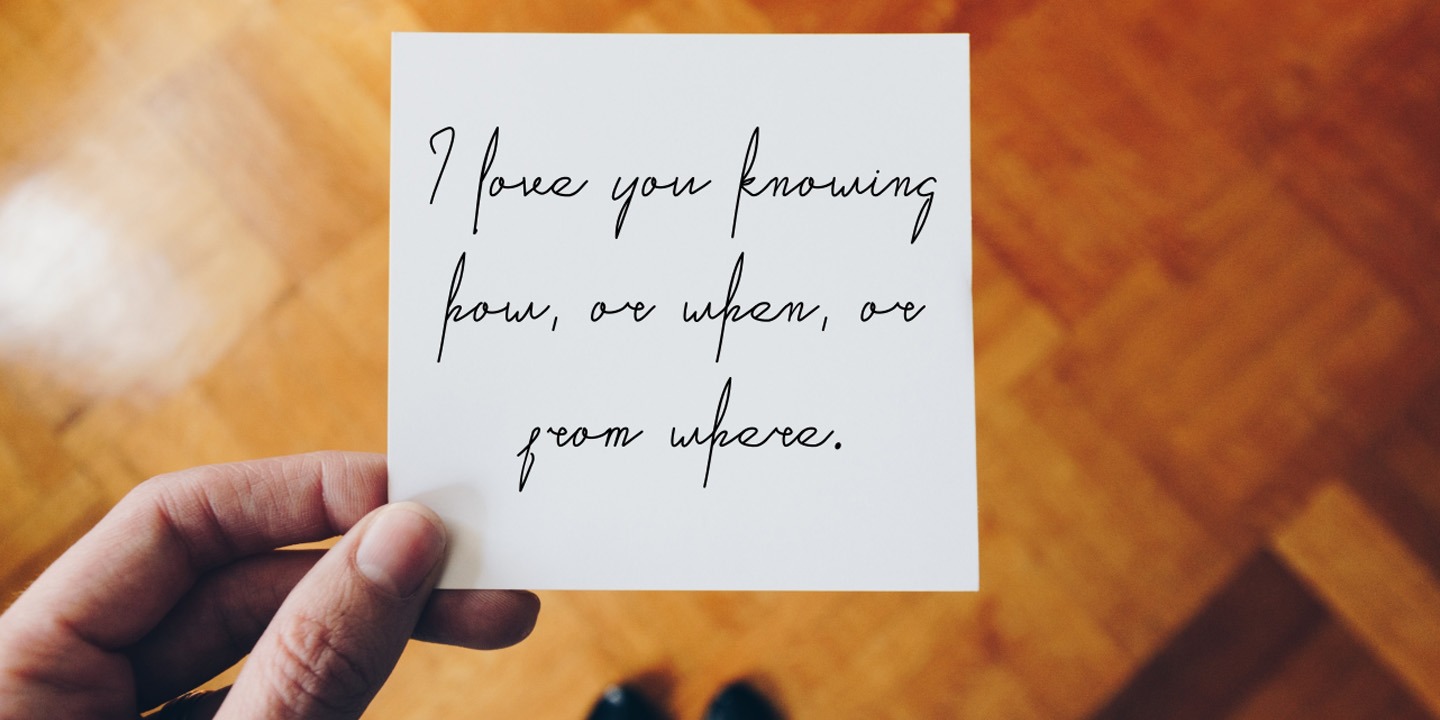 I love you knowing
how, or when, or
from where.